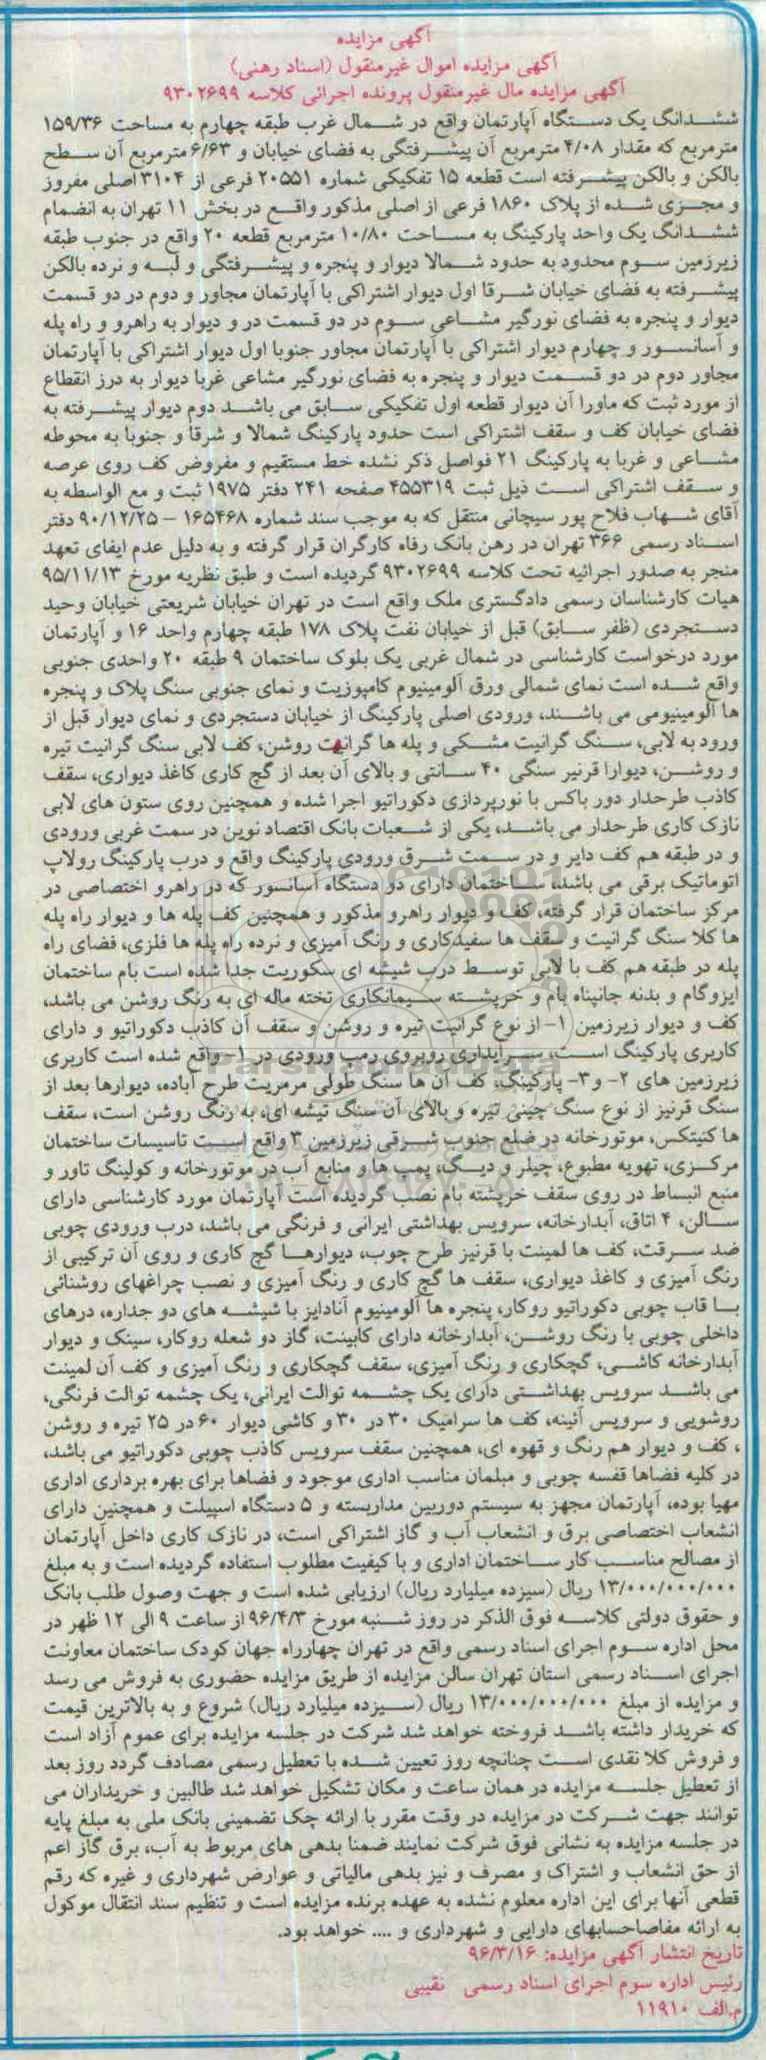 آگهی مزایده
آگهی مزایده اموال غیرمنقول (اسناد رهنی)
آگهی مزایده مال غیرمنقول پرونده اجرائی کلاسه ۹۳۰۲۶۹۹
ششدانگ یک دستگاه آپارتمان واقع در شمال غرب طبقه چهارم به مساحت ۱۵۹/۳۶
مترمربع که مقدار ۴/۰۸ مترمربع آن پیشرفتگی به فضای خیابان و ۶/۶۳ مترمربع آن سطح
بالکن و بالکن پیشرفته است قطعه ۱۵ تفکیکی شماره ۲۰۵۵۱ فرعی از ۳۱۰۴ اصلی مفروز
و مجزی شده از پلاک ۱۸۶۰ فرعی از اصلی مذکور واقع در بخش ۱۱ تهران به انضمام
ششدانگ یک واحد پارکینگ به مساحت ۱۰/۸۰ مترمربع قطعه ۲۰ واقع در جنوب طبقه
زیرزمین سوم محدود به حدود شمالا دیوار و پنجره و پیشرفتگی و لبه و نرده بالکن
پیشرفته به فضای خیابان شرقا اول دیوار اشتراکی با آپارتمان مجاور و دوم در دو قسمت
دیوار و پنجره به فضای نورگیر مشاعی سوم در دو قسمت در و دیوار به راهرو و راه پله
و آسانسور و چهارم دیوار اشتراکی با آپارتمان مجاور جنوبا اول دیوار اشتراکی با آپارتمان
مجاور دوم در دو قسمت دیوار و پنجره به فضای نورگیر مشاعی غربا دیوار به درز انقطاع
از مورد ثبت که ماورا آن دیوار قطعه اول تفکیکی سابق می باشد دوم دیوار پیشرفته به
فضای خیابان کف و سقف اشتراکی است حدود پارکینگ شمالا و شرقا و جنوبا به محوطه
مشاعی و غربا به پارکینگ ۲۱ فواصل ذکر نشده خط مستقیم و مفروض کف روی عرصه
و سقف اشتراکی است ذیل ثبت ۴۵۵۳۱۹ صفحه ۲۴۱ دفتر ۱۹۷۵ ثبت و مع الواسطه به
آقای شهاب فلاح پور سیچانی منتقل که به موجب سند شماره ۱۶۵۴۶۸ - ۹۰/۱۲/۲۵ دفتر
اسناد رسمی ۳۶۶ تهران در رهن بانک رفاه کارگران قرار گرفته و به دلیل عدم ایفای تعهد
منجر به صدور اجرائیه تحت کلاسه ۹۳۰۲۶۹۹ گردیده است و طبق نظریه مورخ ۹۵/۱۱/۱۳
هیات کارشناسان رسمی دادگستری ملک واقع است در تهران خیابان شریعتی خیابان وحید
دستجردی (ظفر سابق) قبل از خیابان نفت پلاک ۱۷۸ طبقه چهارم واحد ۱۶ و آپارتمان
مورد درخواست کارشناسی در شمال غربی یک بلوک ساختمان ۹ طبقه ۲۰ واحدی جنوبی
واقع شده است نمای شمالی ورق آلومینیوم کامپوزیت و نمای جنوبی سنگ پلاک و پنجره
ها آلومینیومی می باشند، ورودی اصلی پارکینگ از خیابان دستجردی و نمای دیوار قبل از
ورود به لابی، سنگ گرانیت مشکی و پله ها گرانیت روشن، کف لابی سنگ گرانیت تیره
و روشن، دیوارا قرنیز سنگی ۴۰ سانتی و بالای آن بعد از گچ کاری کاغذ دیواری، سقف
کاذب طرحدار دور باکس با نورپردازی دکوراتیو اجرا شده و همچنین روی ستون های لابی
نازک کاری طرحدار می باشد، یکی از شعبات بانک اقتصاد نوین در سمت غربی ورودی
و در طبقه هم کف دایر و در سمت شرق ورودی پارکینگ واقع و درب پارکینگ رولاپ
اتوماتیک برقی می باشد، ساختمان دارای دو دستگاه آسانسور که در راهرو اختصاصی در
مرکز ساختمان قرار گرفته، کف و دیوار راهرو مذکور و همچنین کف پله ها و دیوار راه پله
ها کلا سنگ گرانیت و سقف ها سفیدکاری و رنگ آمیزی و نرده راه پله ها فلزی، فضای راه
پله در طبقه هم کف با لابی توسط درب شیشه ای سکوریت جدا شده است بام ساختمان
ایزوگام و بدنه جانپناه بام و خرپشته سیمانکاری تخته ماله ای به رنگ روشن می باشد،
کف و دیوار زیرزمین ۱- از نوع گرانیت تیره و روشن و سقف آن کاذب دکوراتیو و دارای
کاربری پارکینگ است، سرایداری روبروی رمپ ورودی در ۱- واقع شده است کاربری
زیرزمین های ۲- و ۳- پارکینگ، کف آن ها سنگ طولی مرمریت طرح آباده، دیوارها بعد از
سنگ قرنیز از نوع سنگ چینی تیره و بالای آن سنگ تیشه ای، به رنگ روشن است، سقف
ها کنیتکس، موتورخانه در ضلع جنوب شرقی زیرزمین ۳ واقع است تاسیسات ساختمان
مرکزی، تهویه مطبوع، چیلر و دیگ، پمپ ها و منابع آب در موتورخانه و کولینگ تاور و
منبع انبساط در روی سقف خرپشته بام نصب گردیده است آپارتمان مورد کارشناسی دارای
سالن، ۴ اتاق، آبدارخانه، سرویس بهداشتی ایرانی و فرنگی می باشد، درب ورودی چوبی
ضد سرقت، کف ها لمینت با قرنیز طرح چوب، دیوارها گچ کاری و روی آن ترکیبی از
رنگ آمیزی و کاغذ دیواری، سقف ها گچ کاری و رنگ آمیزی و نصب چراغهای روشنائی
با قاب چوبی دکوراتیو روکار، پنجره ها آلومینیوم آنادایز با شیشه های دو جداره، درهای
داخلی چوبی با رنگ روشن، آبدارخانه دارای کابینت، گاز دو شعله روکار، سینک و دیوار
آبدارخانه کاشی، گچکاری و رنگ آمیزی، سقف گچکاری و رنگ آمیزی و کف آن لمینت
می باشد سرویس بهداشتی دارای یک چشمه توالت ایرانی، یک چشمه توالت فرنگی،
روشویی و سرویس آئینه، کف ها سرامیک ۳۰ در ۳۰ و کاشی دیوار ۶۰ در ۲۵ تیره و روشن
، کف و دیوار هم رنگ و قهوه ای، همچنین سقف سرویس کاذب چوبی دکوراتیو می باشد،
در کلیه فضاها قفسه چوبی و مبلمان مناسب اداری موجود و فضاها برای بهره برداری اداری
مهیا بوده، آپارتمان مجهز به سیستم دوربین مداربسته و ۵ دستگاه اسپیلت و همچنین دارای
انشعاب اختصاصی برق و انشعاب آب و گاز اشتراکی است، در نازک کاری داخل آپارتمان
از مصالح مناسب کار ساختمان اداری و با کیفیت مطلوب استفاده گردیده است و به مبلغ
۱۳/۰۰۰/۰۰۰/۰۰۰ ریال (سیزده میلیارد ریال) ارزیابی شده است و جهت وصول طلب بانک
و حقوق دولتی کلاسه فوق الذکر در روز شنبه مورخ ۹۶/۴/۳ از ساعت ۹ الی ۱۲ ظهر در
محل اداره سوم اجرای اسناد رسمی واقع در تهران چهارراه جهان کودک ساختمان معاونت
اجرای اسناد رسمی استان تهران سالن مزایده از طریق مزایده حضوری به فروش می رسد
و مزایده از مبلغ ۱۳/۰۰۰/۰۰۰/۰۰۰ ریال (سیزده میلیارد ریال) شروع و به بالاترین قیمت
که خریدار داشته باشد فروخته خواهد شد شرکت در جلسه مزایده برای عموم آزاد است
و فروش کلا نقدی است چنانچه روز تعیین شده با تعطیل رسمی مصادف گردد روز بعد
از تعطیل جلسه مزایده در همان ساعت و مکان تشکیل خواهد شد طالبین و خریداران می
توانند جهت شرکت در مزایده در وقت مقرر با ارائه چک تضمینی بانک ملی به مبلغ پایه
در جلسه مزایده به نشانی فوق شرکت نمایند ضمنا بدهی های مربوط به آب، برق گاز اعم
از حق انشعاب و اشتراک و مصرف و نیز بدهی مالیاتی و عوارض شهرداری و غیره که رقم
قطعی آنها برای این اداره معلوم نشده به عهده برنده مزایده است و تنظیم سند انتقال موکول
به ارائه مفاصاحسابهای دارایی و شهرداری و .... خواهد بود.
تاریخ انتشار آگهی مزایده: ۹۶/۳/۱۶
رئیس اداره سوم اجرای اسناد رسمی نقیبی
م.الف ۱۱۹۱۰